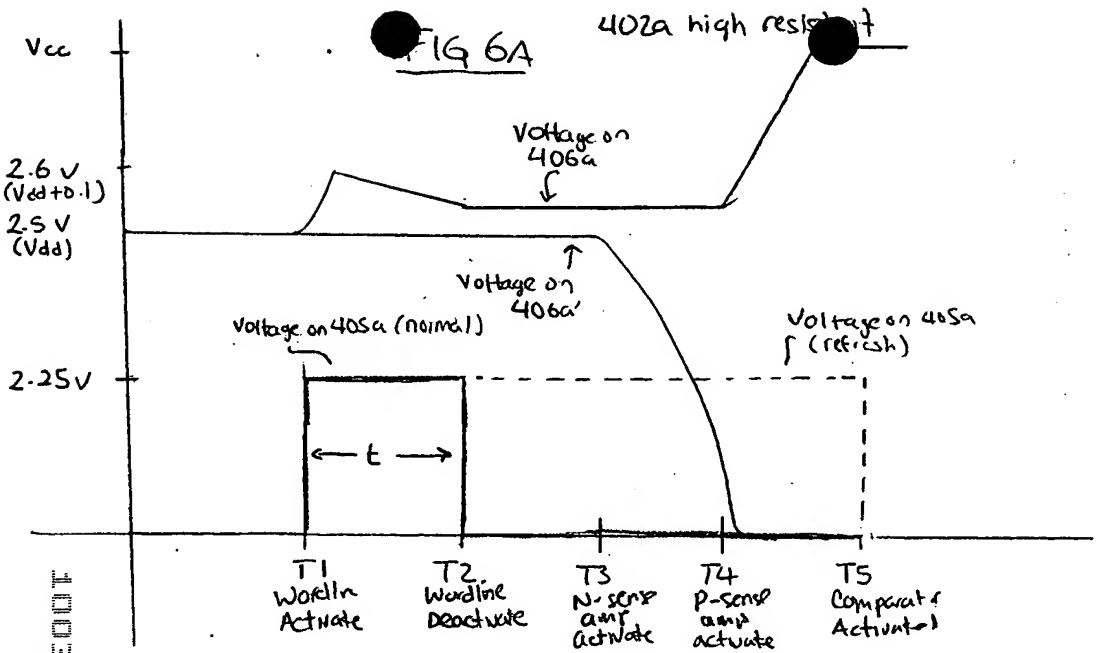 Vcc
FIG 6A
402a high resist
2.6 V
(Vdd+0.1)
2.5 V
(Vdd)
Voltage on
406a
Voltage on
406a'
Voltage on 405a (normal)
Voltage on 405a
(refresh)
2.25V
t
T1
Wordlin
Activate
T2
Wordline
Deactivate
T3
N-sense
amp
activate
T4
P-sense
amp
activate
T5
Comparator
Activated